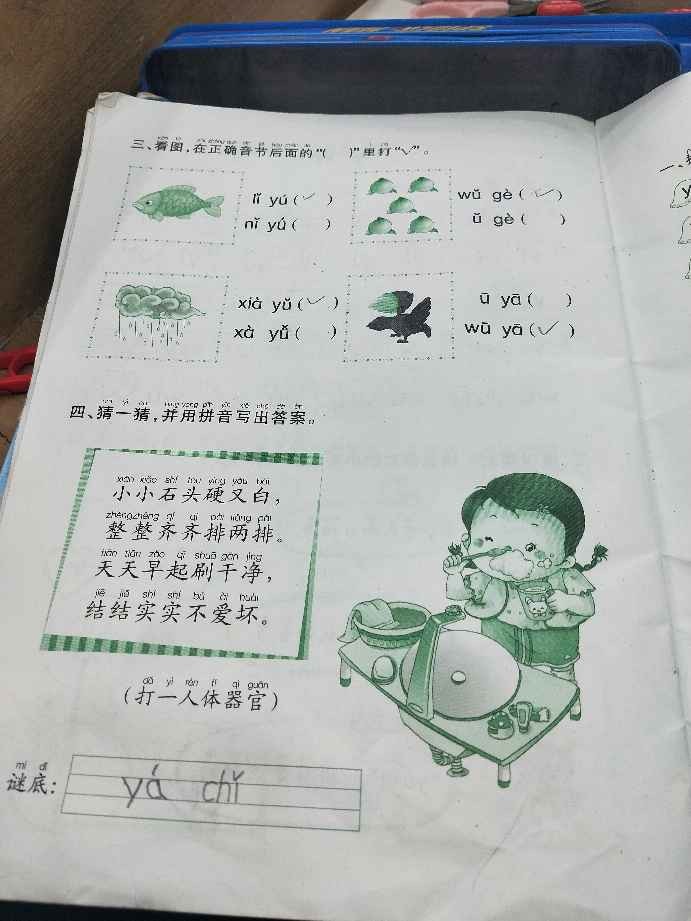 三、看图，在正确音节后面的“( )”里打“√”。
lǐ yú ( √ ) wǔ gè ( √ )
nǐ yú ( ) ǔ gè ( )
xià yǔ ( √ ) ū yā ( )
xà yǔ ( ) wū yā ( √ )
四、猜一猜，并用拼音写出答案。
xiǎo xiǎo shí tou yìng yòu bái
小小石头硬又白，
zhěngzhěng qí qí pái liǎng pái
整整齐齐排两排。
tiān tiān zǎo qǐ shuā gān jìng
天天早起刷干净，
jiē jiē shí shí bú ài huài
结结实实不爱坏。
dǎ yì rén tǐ qì guān
（打一人体器官）
mí dǐ
谜底：
yá chǐ